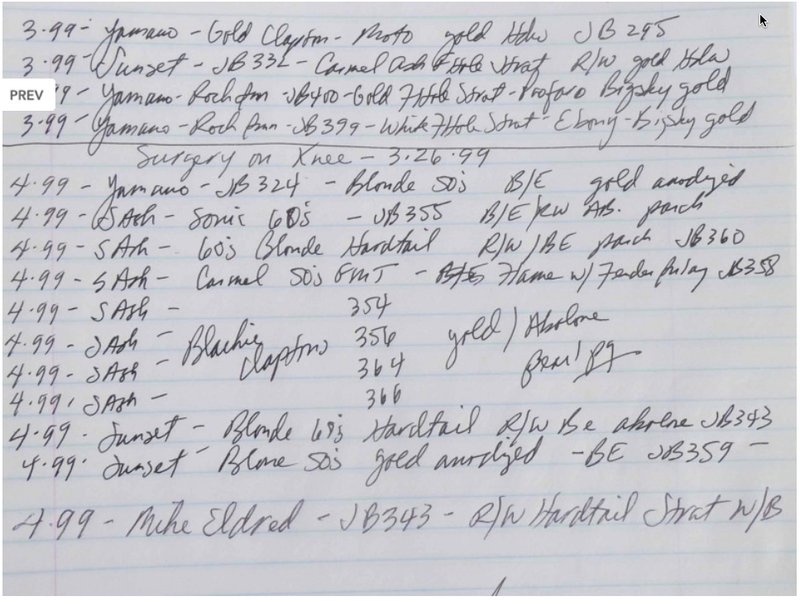 3.99 - Yamano - Gold Clapton - Moto gold Hdw JB 295
3.99 - Sunset - JB332 - Carmel Ash Strat R/W gold Hdw
PREV
99 - Yamano - JB400 - Gold 7 Hole Strat - Bigsky gold
3.99 - Yamano - JB399 - White 7 Hole Strat - Ebony - Bigsky gold
Surgery on Knee - 3.26.99
4.99 - Yamano - JB324 - Blonde 50's B/E gold anodized
4.99 - SAsh - Sonic 60's - JB355 B/E/RW AB. parch
4.99 - SAsh - 60's Blonde Hardtail R/W/BE parch JB360
4.99 - SAsh - Carmel 50's FMT - Flame w/ Fender JB358
4.99 - SAsh - 354
4.99 - SAsh - Blackie 356 gold / Abolone
4.99 - SAsh - Claptons 364
4.99 - SAsh - 366
4.99 - Sunset - Blonde 60's Hardtail R/W Be abolone JB343
4.99 - Sunset - Blone 50's gold anodized - BE JB359 -
4.99 - Mike Eldred - JB343 - R/W Hardtail Strat W/B